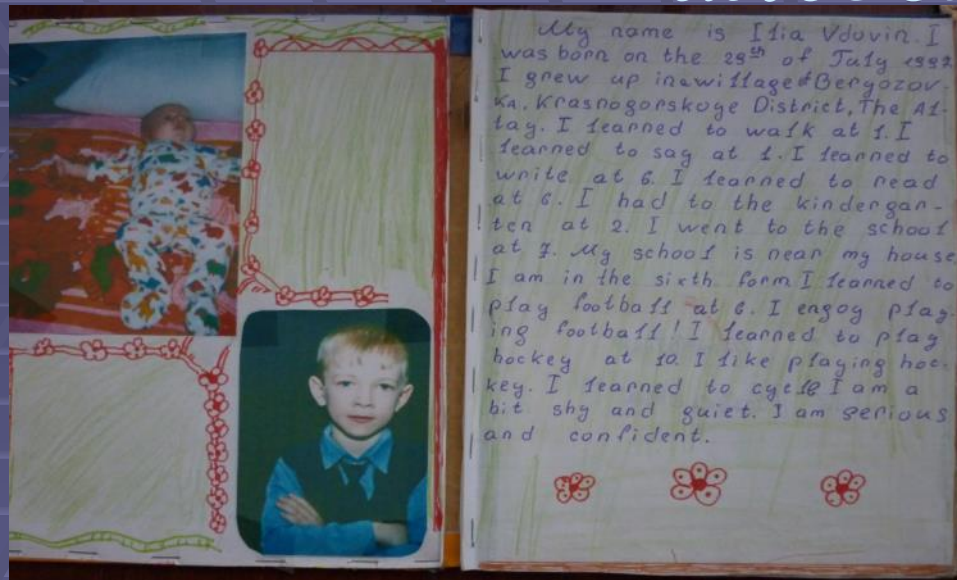 My name is Ilia Vdovin. I
was born on the 29th of July 1997
I grew up in a willage of Beryozov-
ka, Krasnogorskoye District, The Al-
tay. I learned to walk at 1. I
learned to say at 1. I learned to
write at 6. I learned to read
at 6. I had to the kindergar-
ten at 2. I went to the school
at 7. My school is near my house
I am in the sixth form I learned to
play football at 6. I engoy play-
ing football! I learned to play
hockey at 10. I like playing hoc-
key. I learned to cycle I am a
bit shy and quiet. I am serious
and confident.